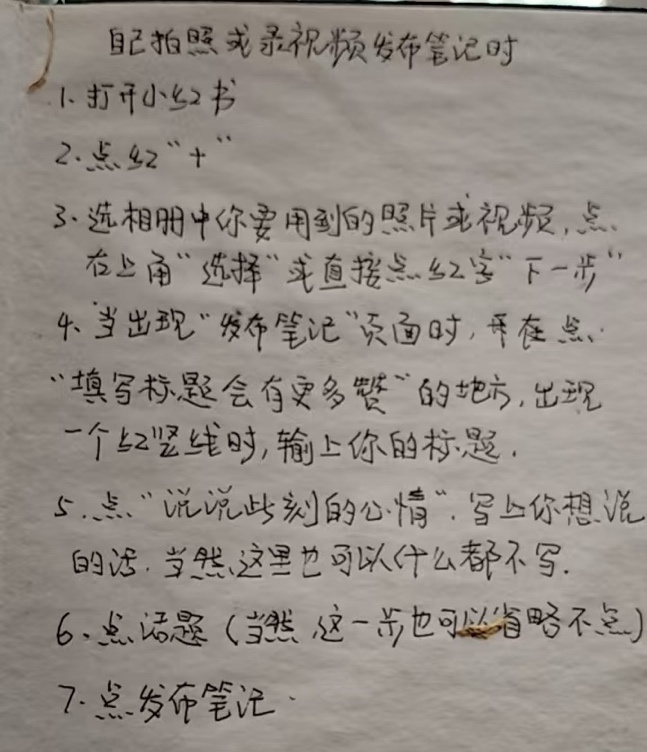 自己拍照或录视频发布笔记时
1.打开小红书
2.点红"+"
3.选相册中你要用到的照片或视频,点
右上角"选择"或直接点红字"下一步"
4.当出现"发布笔记"页面时,再在点
"填写标题会有更多赞"的地方,出现
一个红竖线时,输上你的标题.
5.点"说说此刻的心情".写上你想说
的话.当然,这里也可以什么都不写.
6.点话题(当然,这一步也可以省略不点)
7.点发布笔记.